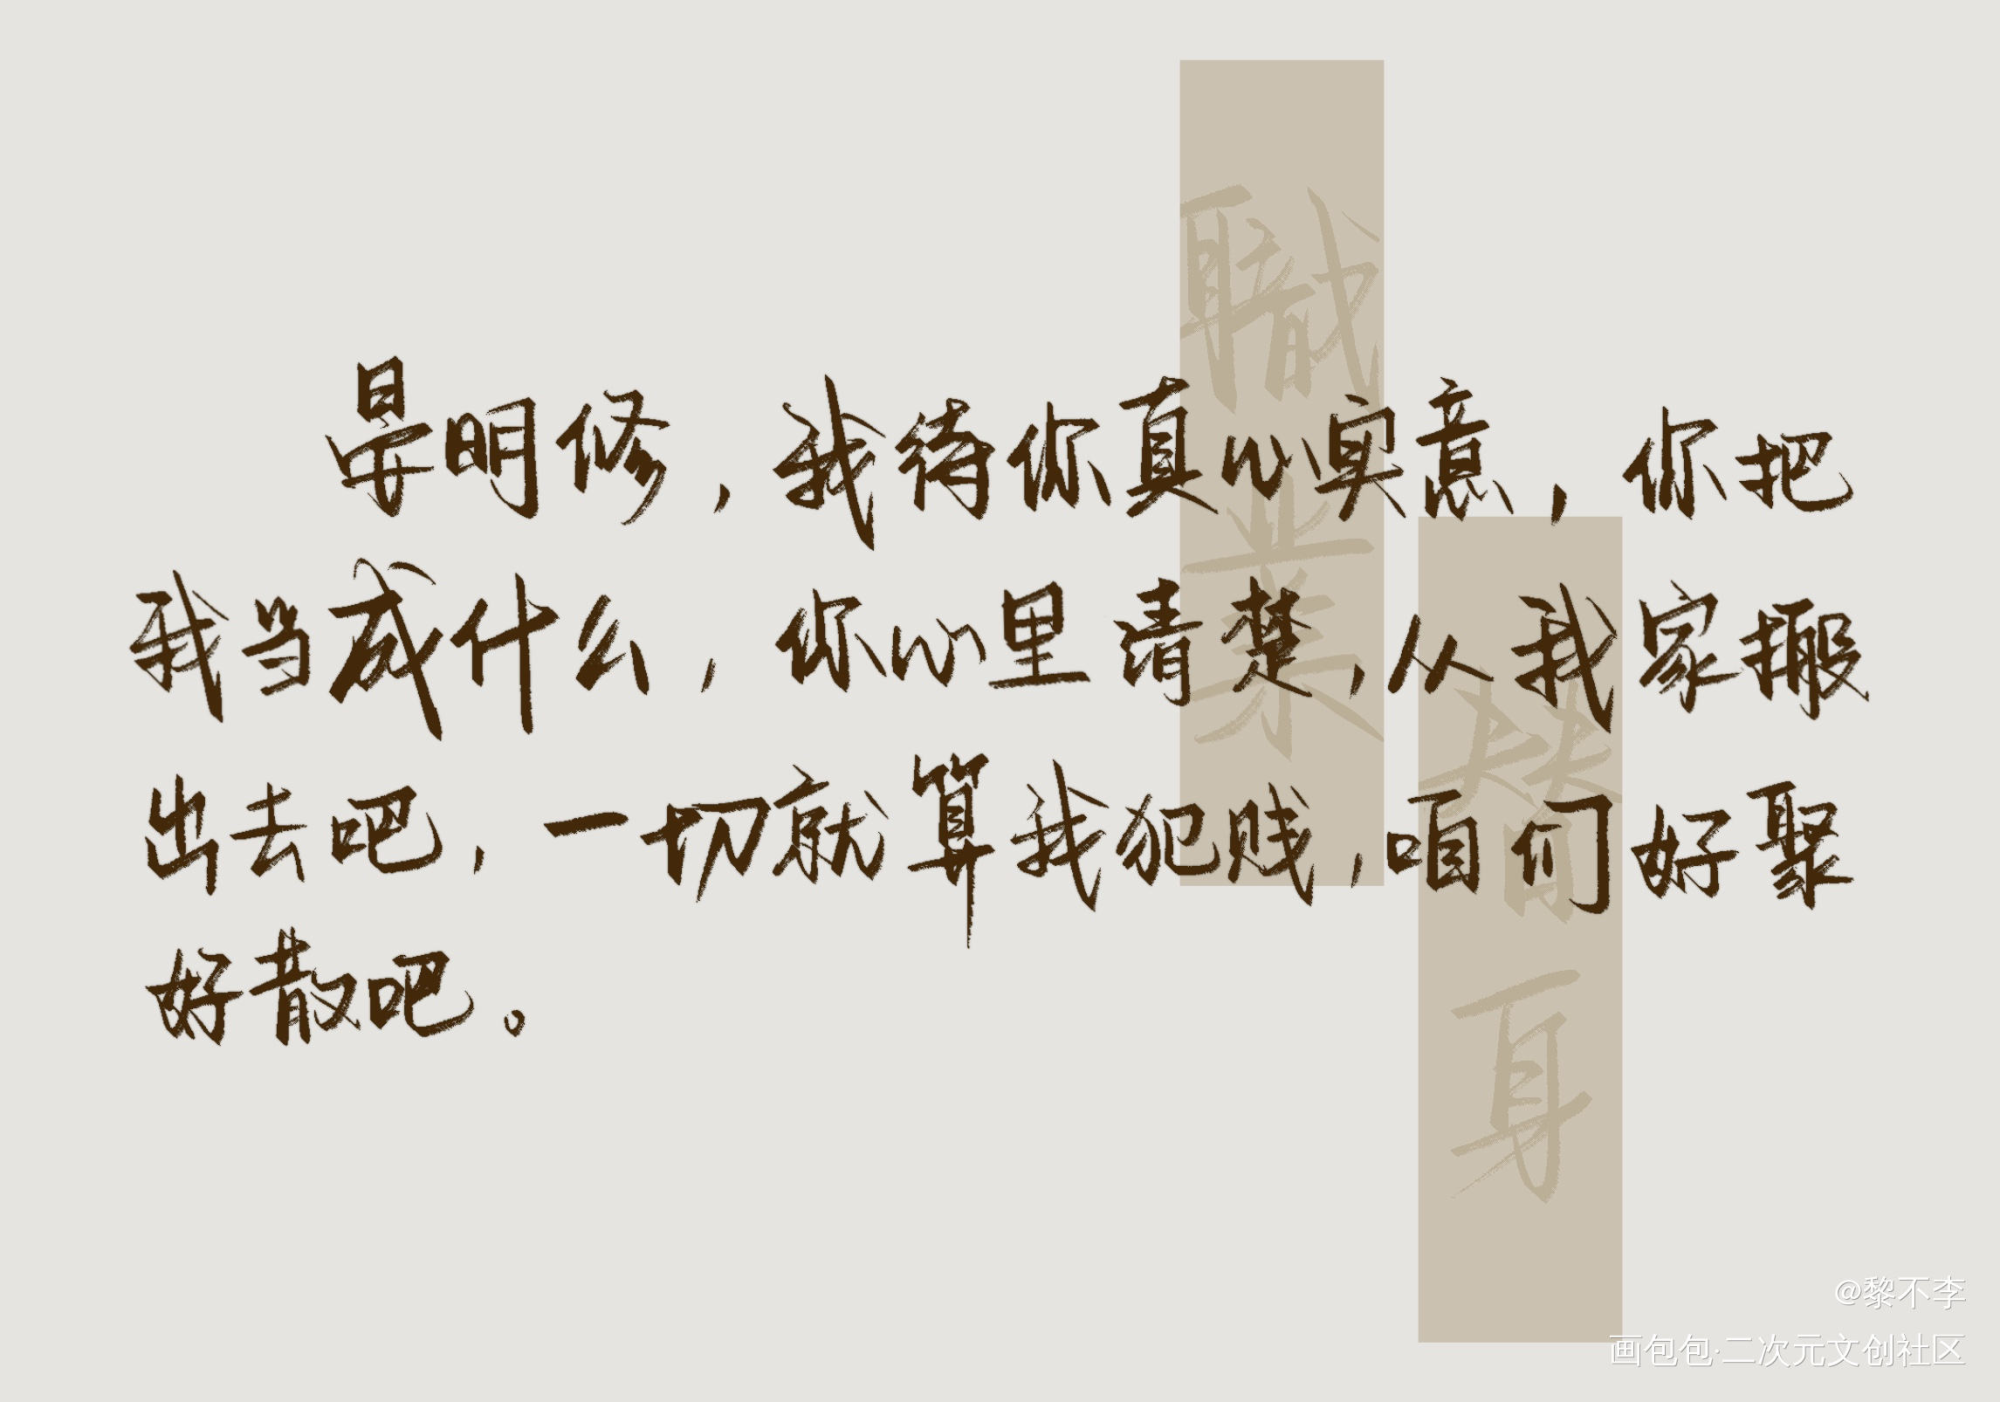 晏明修，我待你真心实意，你把
我当成什么，你心里清楚，从我家搬
出去吧，一切就算我犯贱，咱们好聚
好散吧。
職業
替身
@黎不李
画包包·二次元文创社区